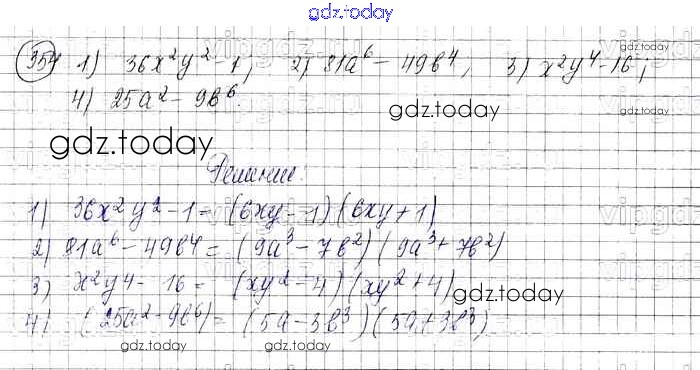 gdz.today
354 1) 36x²y² - 1; 2) 81a⁶ - 49b⁴; 3) x²y⁴ - 16;
4) 25a² - 9b⁶.
gdz.today
gdz.today
gdz.today
Решение.
1) 36x²y² - 1 = (6xy - 1)(6xy + 1)
2) 81a⁶ - 49b⁴ = (9a³ - 7b²)(9a³ + 7b²)
3) x²y⁴ - 16 = (xy² - 4)(xy² + 4)
gdz.today
4) (25a² - 9b⁶) = (5a - 3b³)(5a + 3b³)
gdz.today
gdz.today